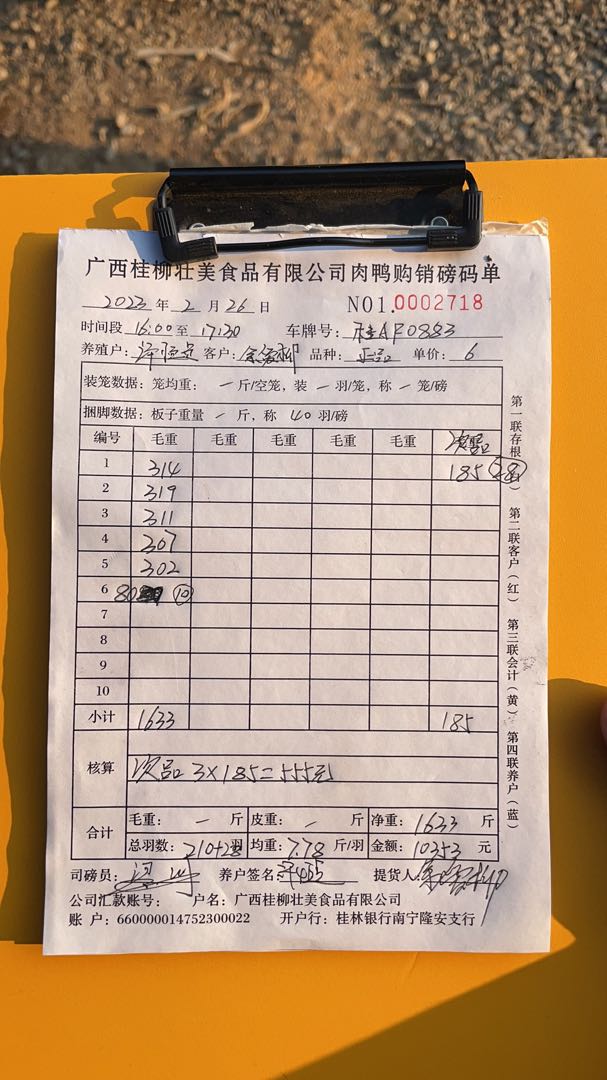 广西桂柳壮美食品有限公司肉鸭购销磅码单
2023年2月26日 NO1.0002718
时间段 16:00至17:20 车牌号：桂AF0883
养殖户： 客户： 品种：正品 单价：6
装笼数据：笼均重：一斤/空笼，装一羽/笼，称一笼/磅
捆脚数据：板子重量一斤，称40羽/磅
编号 毛重 毛重 毛重 毛重 毛重 次品
1 314 185 (28)
2 319
3 311
4 307
5 302
6 80 (10)
7
8
9
10
小计 1633 185
核算 次品 3×185=555元
合计 毛重：一斤 皮重：一斤 净重：1633斤
总羽数：210+28羽 均重：7.78斤/羽 金额：10353元
司磅员： 养户签名： 提货人：
公司汇款账号： 户名：广西桂柳壮美食品有限公司
账户：660000014752300022 开户行：桂林银行南宁隆安支行
第一联存根（白） 第二联客户（红） 第三联会计（黄） 第四联养户（蓝）